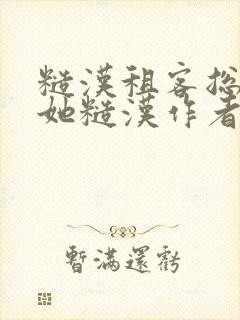 糙漢租客総
她糙漢作者
暫滿還虧